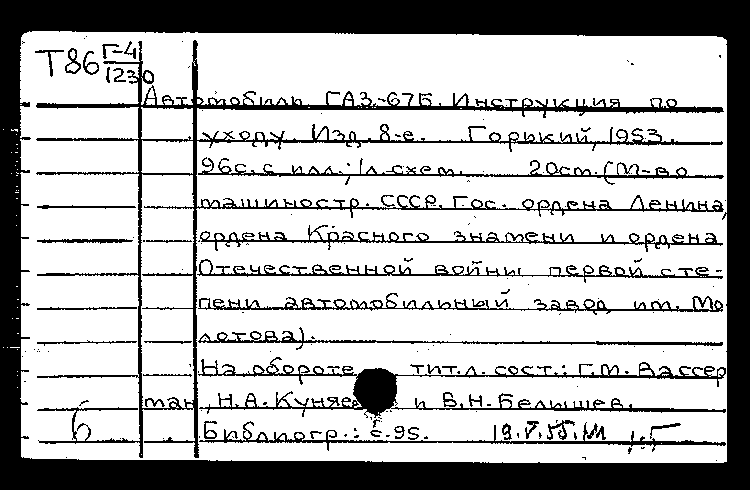 Т86 Г-4
1230
Автомобиль ГАЗ-67Б. Инструкция по
уходу Изд. 8-е. Горький, 1953.
96с. с илл.; 1л. схем. 20 см. (М-во
машиностр. СССР. Гос. ордена Ленина,
ордена Красного знамени и ордена
Отечественной войны первой сте-
пени автомобильный завод им. Мо
лотова).
На обороте тит. л. сост.: Г.М. Вассер
ман, Н.А. Куняев и В.Н. Белышев.
Библиогр.: с. 95.
б